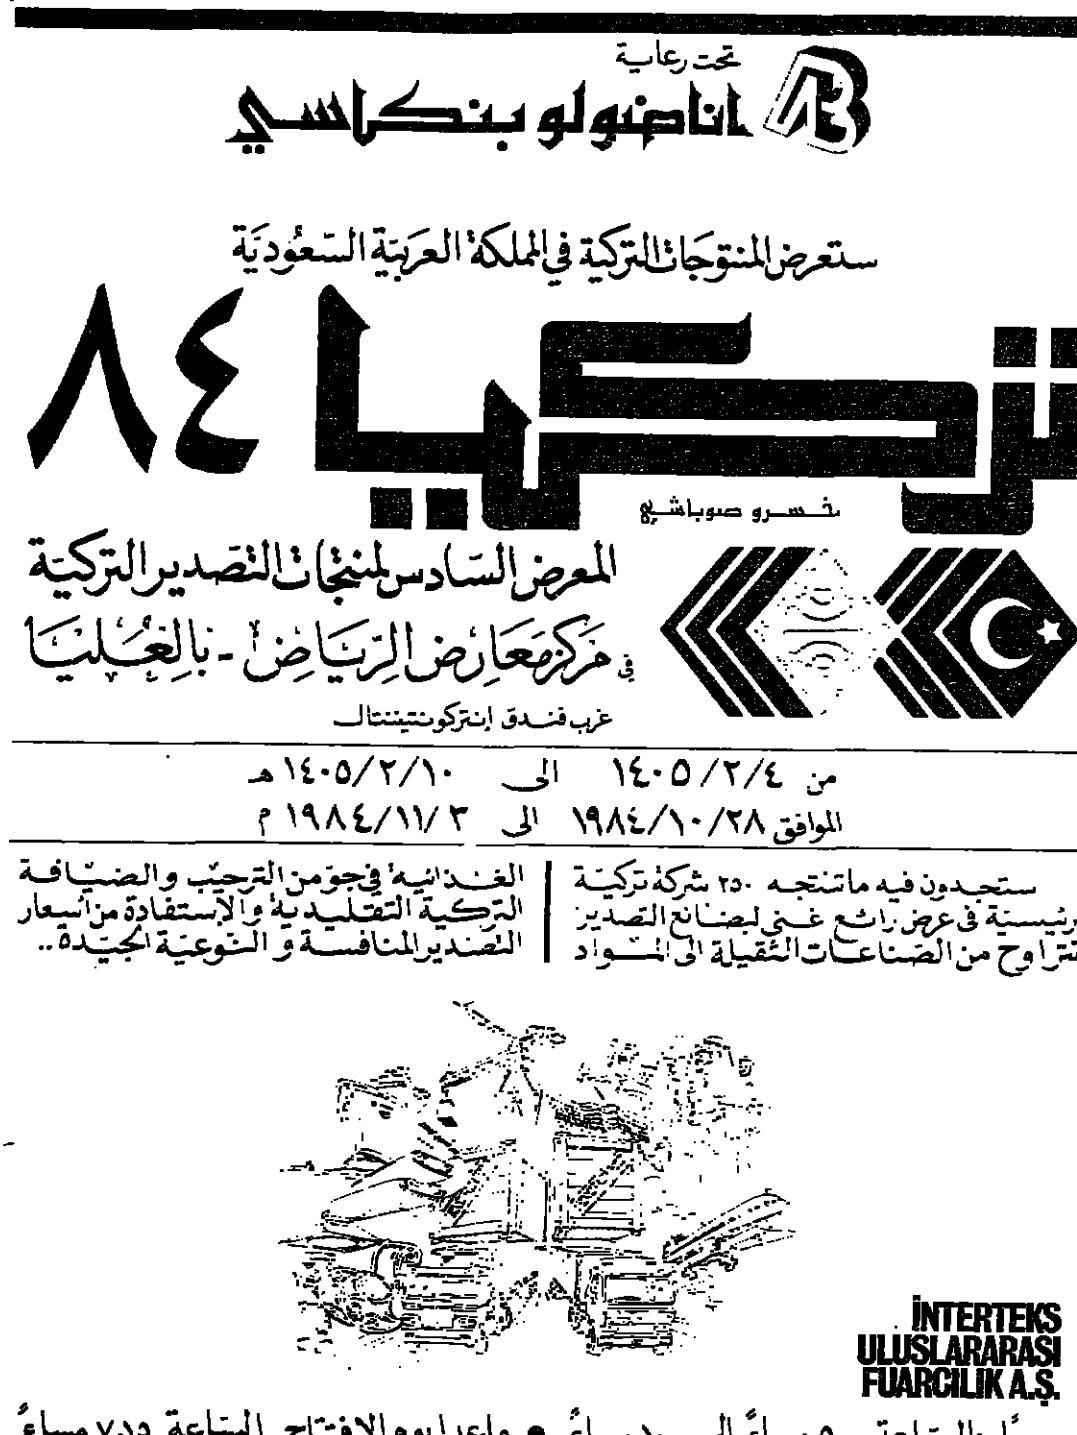 تحت رعاية
اناضولو بنكاسي
ستعرض المنتوجات التركية في المملكة العربية السعودية
تركيا ٨٤
خسرو صوباشي
المعرض السادس لمنتجات التصدير التركية
في مركز معارض الرياض - بالعليا
غرب فندق انتركونتيننتال
من ١٤٠٥/٢/٤ الى ١٤٠٥/٢/١٠ هـ
الموافق ١٩٨٤/١٠/٢٨ الى ١٩٨٤/١١/٣ م
ستجدون فيه ماتنتجه ٢٥٠ شركة تركية
رئيسية في عرض رائع غني لبضائع التصدير
تتراوح من الصناعات الثقيلة الى المواد
الغذائية في جو من الترحيب والضيافة
التركية التقليدية والاستفادة من أسعار
التصدير المنافسة و النوعية الجيدة..
İNTERTEKS
ULUSLARARASI
FUARCILIK A.Ş.
ماعدا يوم الافتتاح الساعة ٧،١٥ مساءً